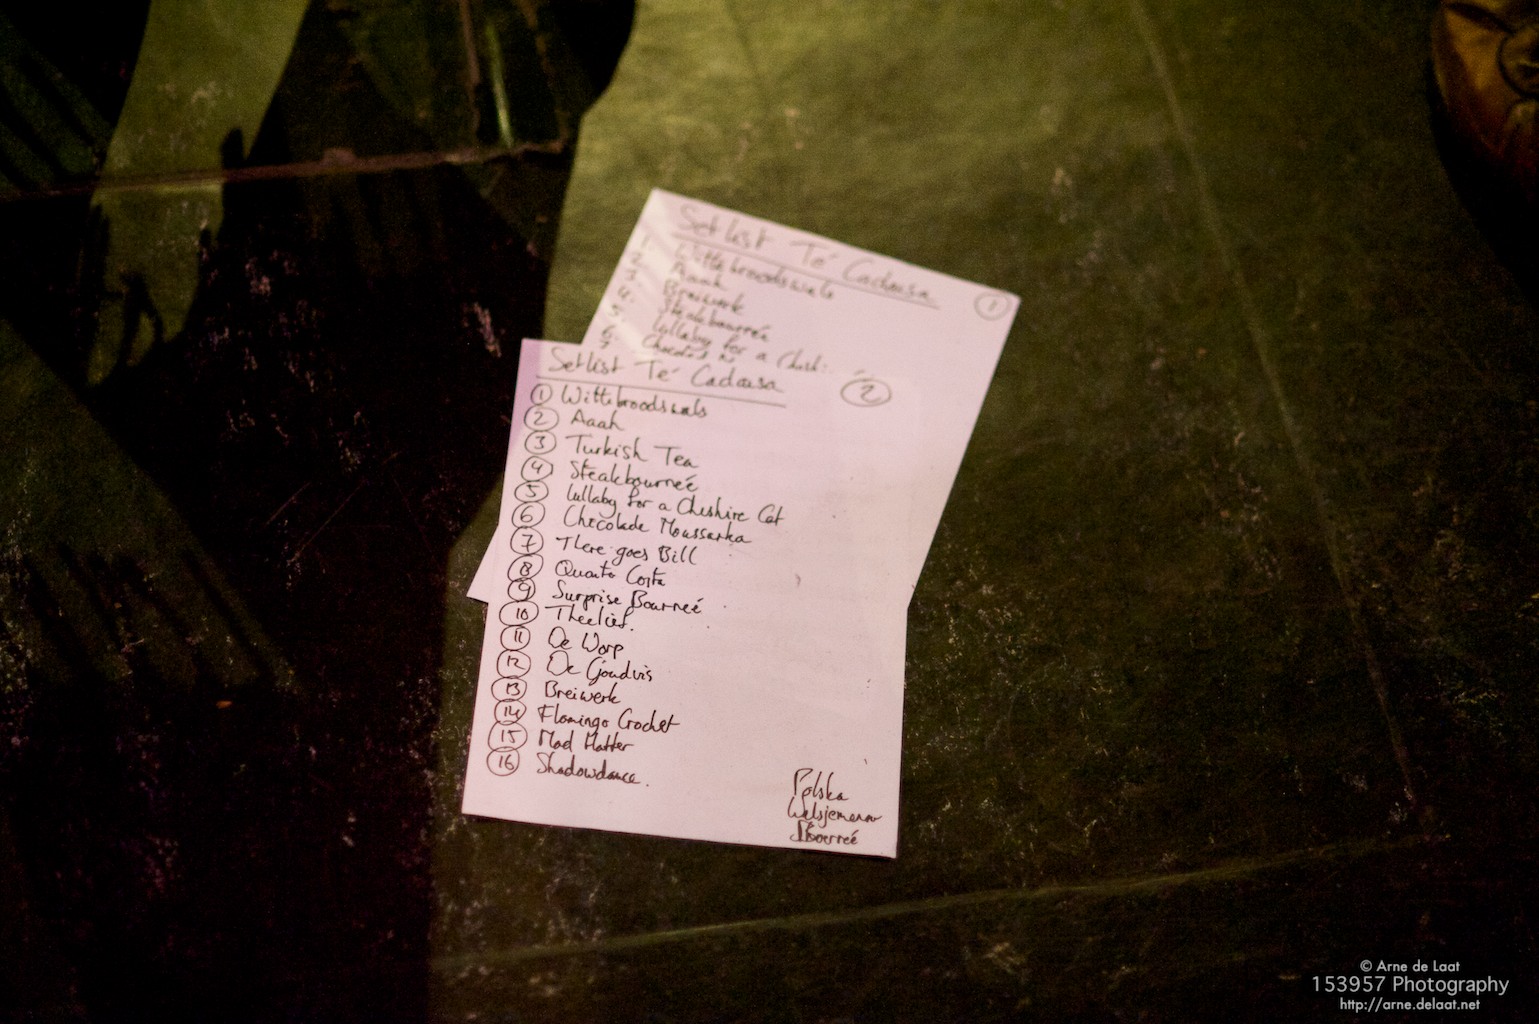 Setlist Té Cadousa
1
1 Wittebroodswals
2 Aaah
3 Breiwerk
4 Steakbourreé
5 Lullaby for a Chesh
6
7
Setlist Té Cadousa
2
1 Wittebroodswals
2 Aaah
3 Turkish Tea
4 Steakbourreé
5 Lullaby for a Cheshire Cat
6 Chocolade Moussaka
7 There goes Bill
8 Quanto Costa
9 Surprise Bourreé
10 Theelied.
11 De Worp
12 De Goudvis
13 Breiwerk
14 Flamingo Crochet
15 Mad Hatter
16 Shadowdance.
Polska
Bourreé
© Arne de Laat
153957 Photography
http://arne.delaat.net